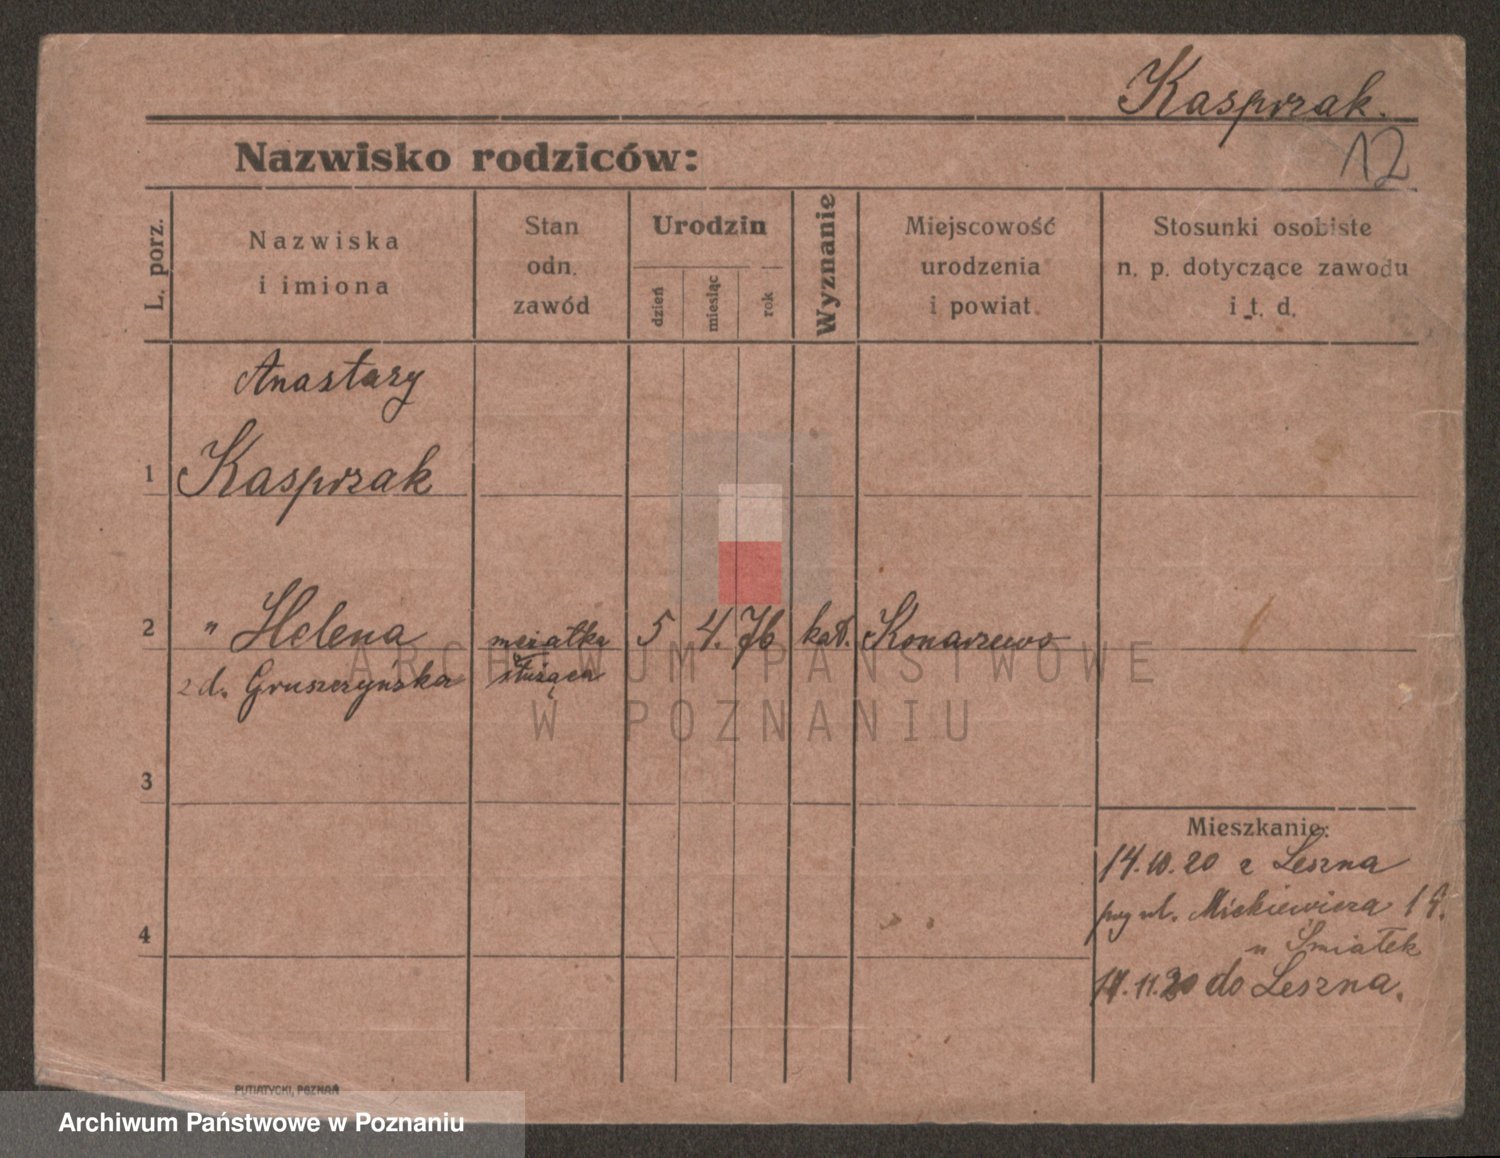 Kasprzak.
12
Nazwisko rodziców:
L. porz.
Nazwiska
i imiona
Stan
odn.
zawód
Urodzin
dzień
miesiąc
rok
Wyznanie
Miejscowość
urodzenia
i powiat.
Stosunki osobiste
n. p. dotyczące zawodu
i t. d.
Anastazy
1 Kasprzak
2 " Helena mężatka 5 4. 76 kat. Konarzewo
z d. Gruszczyńska służąca
ARCHIWUM PAŃSTWOWE
W POZNANIU
3
Mieszkanie:
14.10.20 z Leszna
ul. Mickiewicza
4
u Śmiałek
11.20 do Leszna.
PUTIATYCKI, POZNAŃ
Archiwum Państwowe w Poznaniu